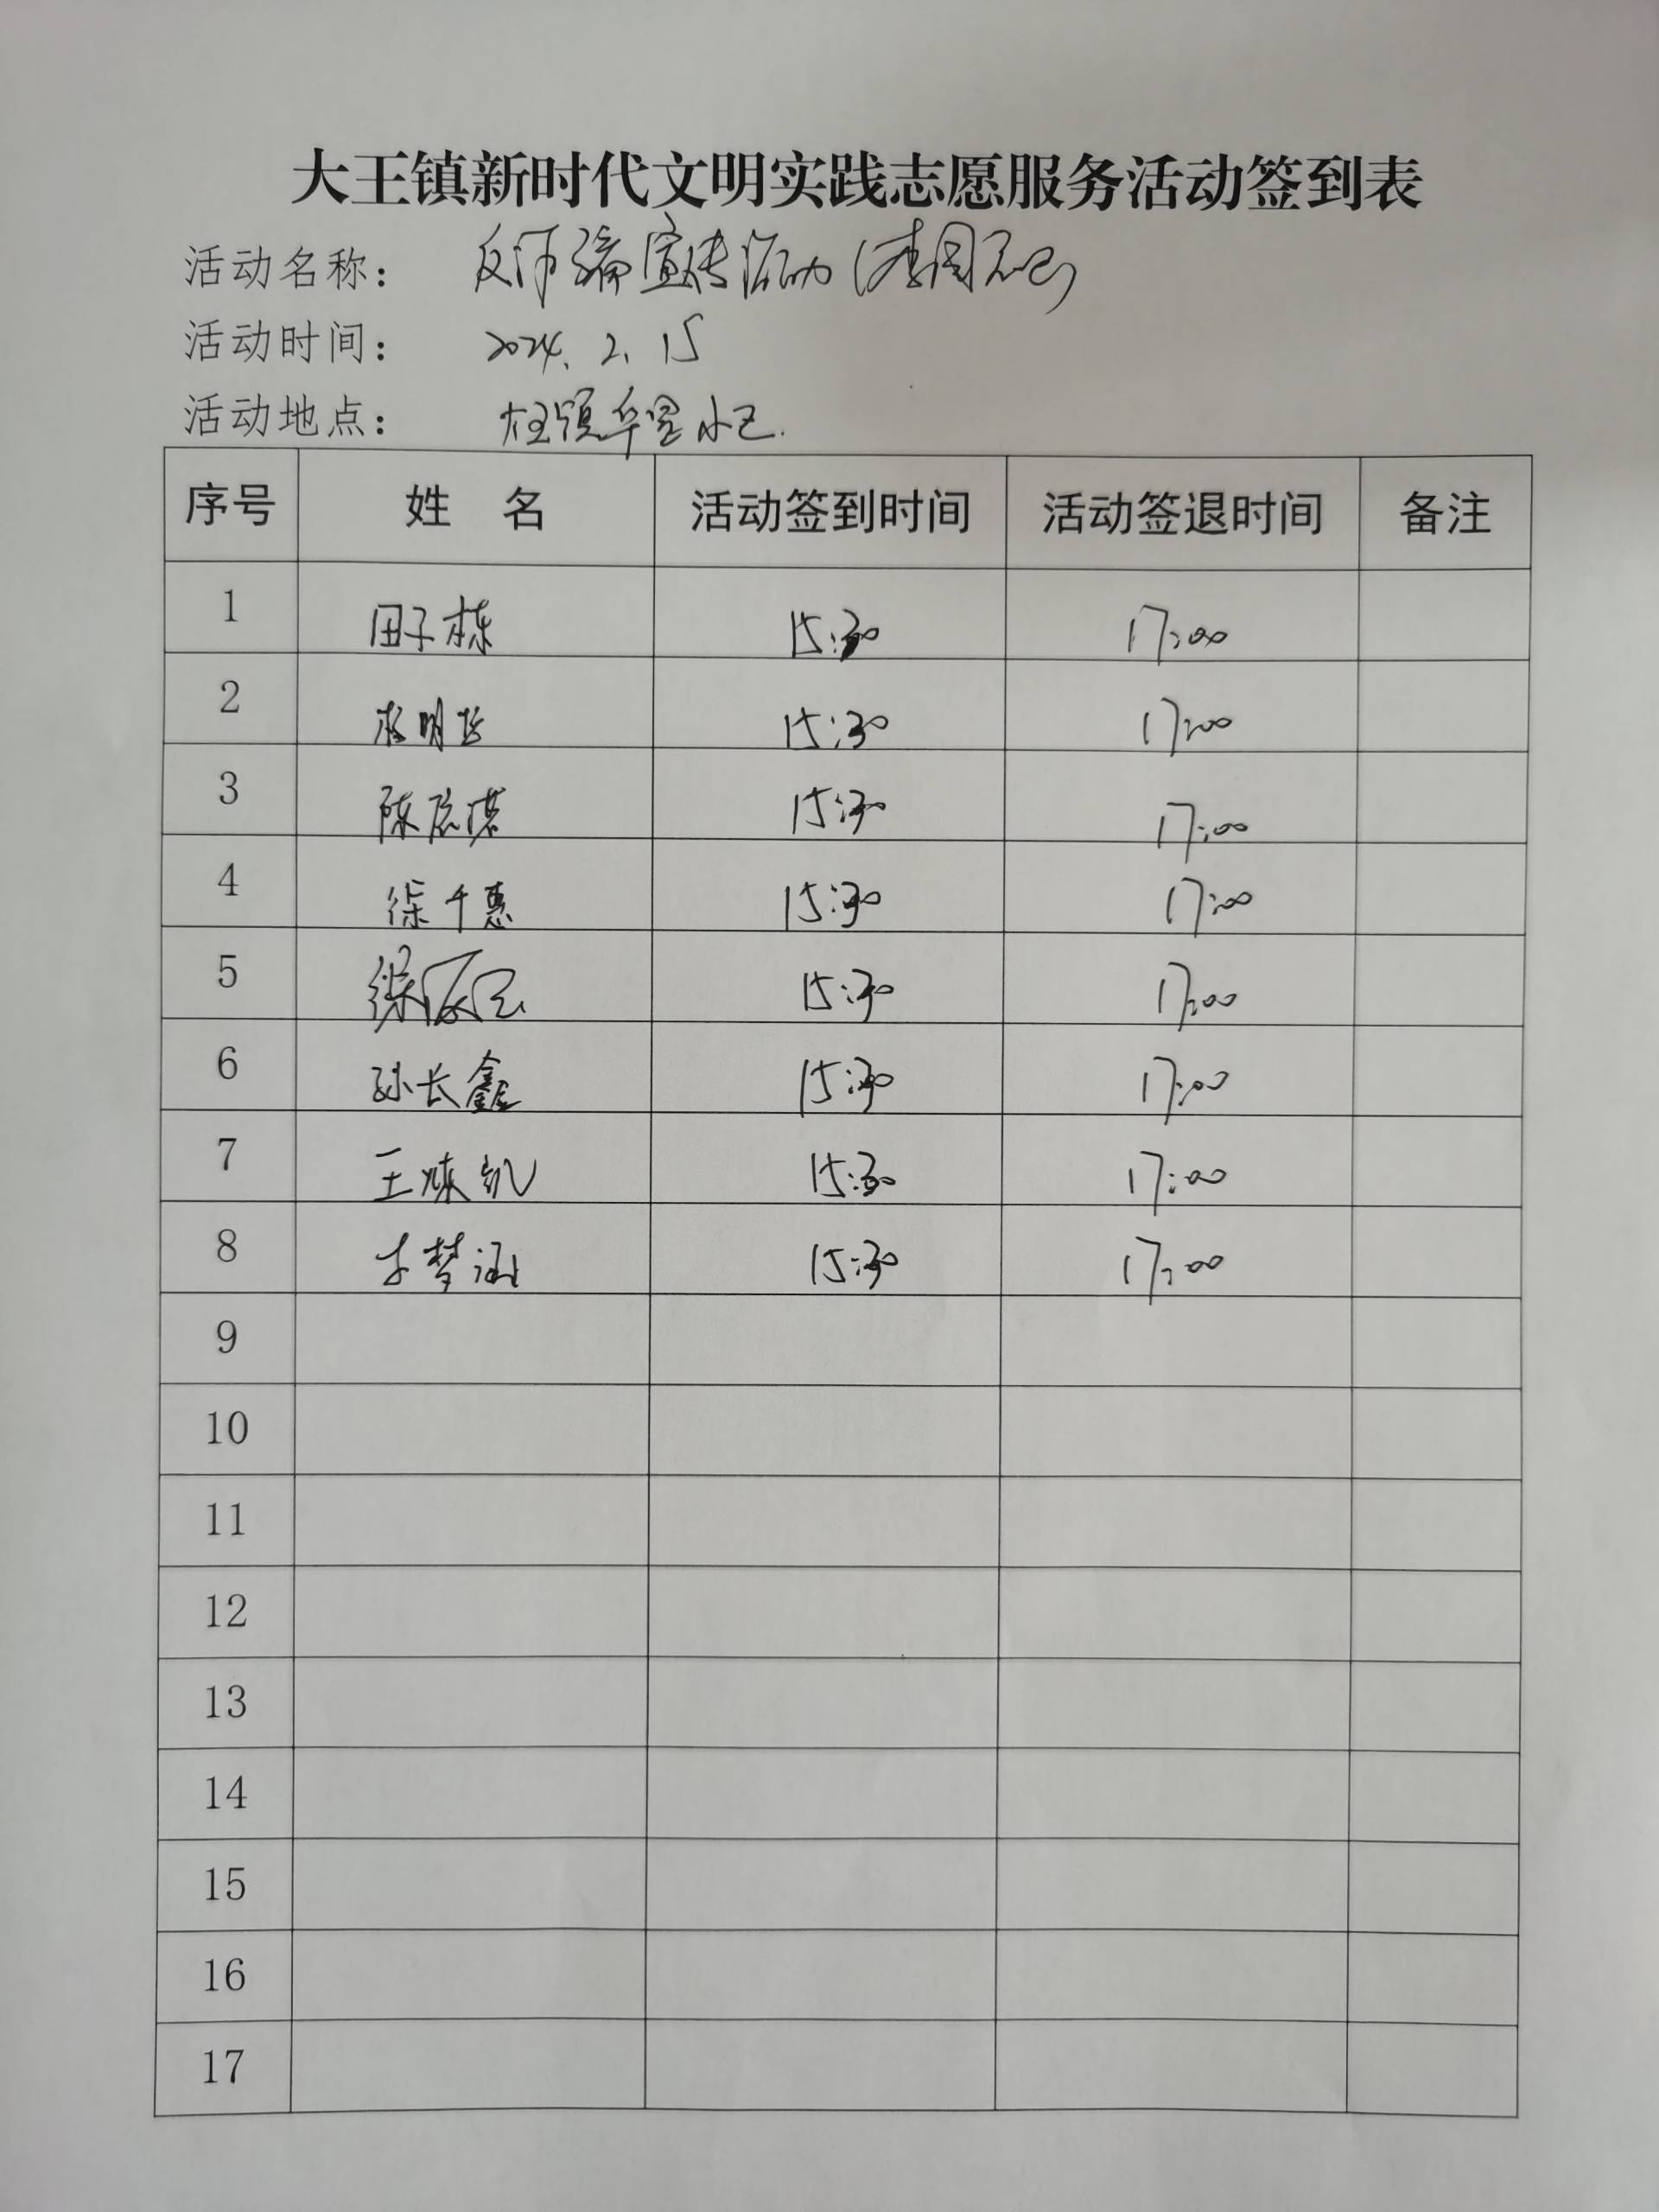 大王镇新时代文明实践志愿服务活动签到表
活动名称： 反诈骗宣传活动
活动时间： 2024.2.15
活动地点： 大王镇华署小区.
序号 姓 名 活动签到时间 活动签退时间 备注
1 田子栋 15:30 17:00
2 15:30 17:00
3 15:30 17:00
4 徐千惠 15:30 17:00
5 15:30 17:00
6 孙长鑫 15:30 17:00
7 15:30 17:00
8 李梦涵 15:30 17:00
9
10
11
12
13
14
15
16
17